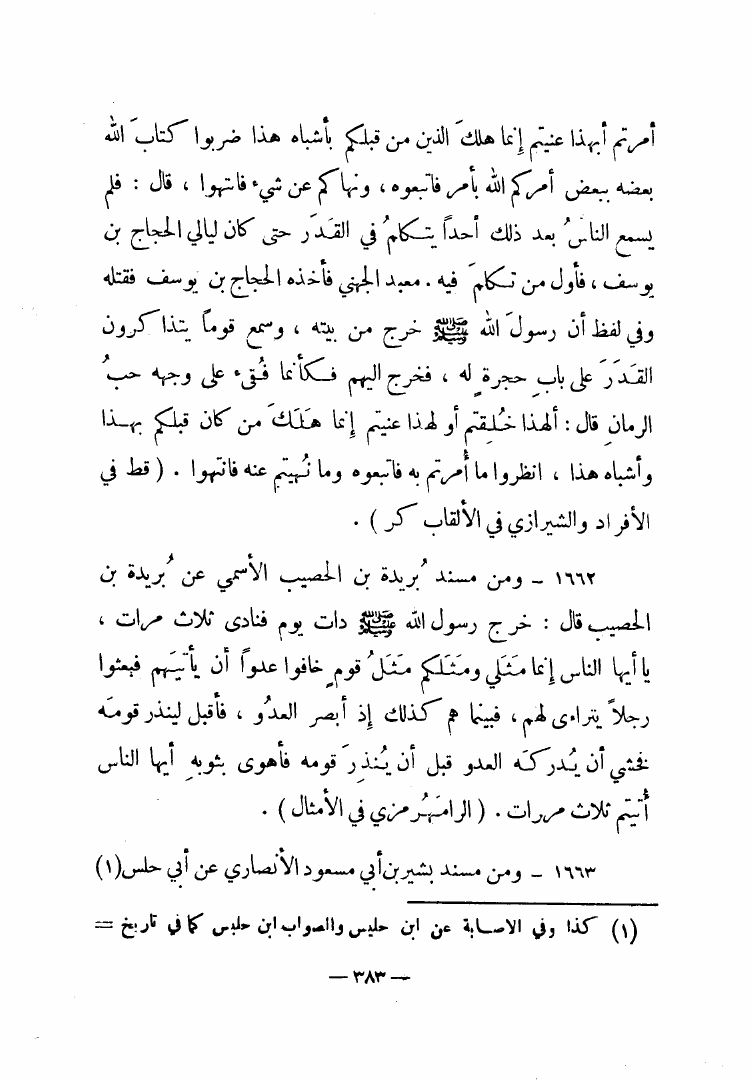 أمرتم أبهذا عنيتم إنما هلكَ الذين من قبلكم بأشباه هذا ضربوا كتابَ الله
بعضه ببعض أمركم الله بأمر فاتبعوه ، ونهاكم عن شيء فانتهوا ، قال : فلم
يسمع الناسُ بعد ذلك أحداً يتكلمُ في القَدَر حتى كان ليالي الحجاج بن
يوسف ، فأول من تكلمَ فيه . معبد الجهني فأخذه الحجاج بن يوسف فقتله
وفي لفظ أن رسولَ الله ﷺ خرج من بيته ، وسمع قوماً يتذاكرون
القَدَرَ على بابِ حجرةٍ له ، فخرج اليهم فكأنما فُقىء على وجهه حبُ
الرمانِ قال : ألهذا خُلِقتم أو لهذا عنيتم إنما هَلَكَ من كان قبلكم بهذا
وأشباه هذا ، انظروا ما أُمرتم به فاتبعوه وما نُهيتم عنه فانتهوا . ( قط في
الأفراد والشيرازي في الألقاب كر ) .
١٦٦٢ ـ ومن مسند بُريدة بن الحصيب الأسمي عن بُريدة بن
الحصيب قال : خرج رسول الله ﷺ دات يوم فنادى ثلاث مرات ،
يا أيها الناس إنما مَثَلي ومَثَلكم مَثَلُ قومٍ خافوا عدواً أن يأتيَهم فبعثوا
رجلاً يتراءى لهم ، فبينما هم كذلك إذ أبصر العدُو ، فأقبل لينذر قومَه
فخشي أن يُدركَه العدو قبل أن يُنذِرَ قومه فأهوى بثوبهِ أيها الناس
أُتيتم ثلاث مررات . ( الرامَهُرمزي في الأمثال ) .
١٦٦٣ ـ ومن مسند بشير بن أبي مسعود الأنصاري عن أبي حلس(١)
(١) كذا وفي الاصابة عن ابن حليس والصواب ابن حلبس كما في تاريخ =
— ٣٨٣ —